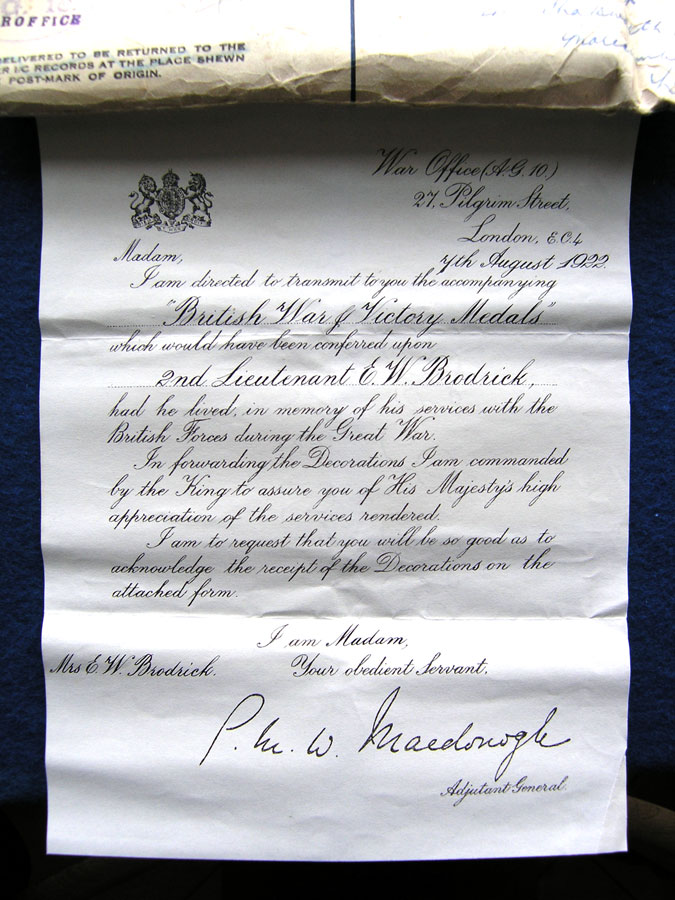 ROFFICE
ELIVERED TO BE RETURNED TO THE
R I/C RECORDS AT THE PLACE SHEWN
POST-MARK OF ORIGIN.
War Office (A.G. 10.)
27, Pilgrim Street,
London, E.C.4
7th August 1922.
Madam,
I am directed to transmit to you the accompanying
"British War & Victory Medals"
which would have been conferred upon
2nd Lieutenant E.W. Brodrick,
had he lived, in memory of his services with the
British Forces during the Great War.
In forwarding the Decorations I am commanded
by the King to assure you of His Majesty's high
appreciation of the services rendered.
I am to request that you will be so good as to
acknowledge the receipt of the Decorations on the
attached form.
I am Madam,
Your obedient Servant,
Mrs E.W. Brodrick.
P. M. W. Macdonogh
Adjutant General.